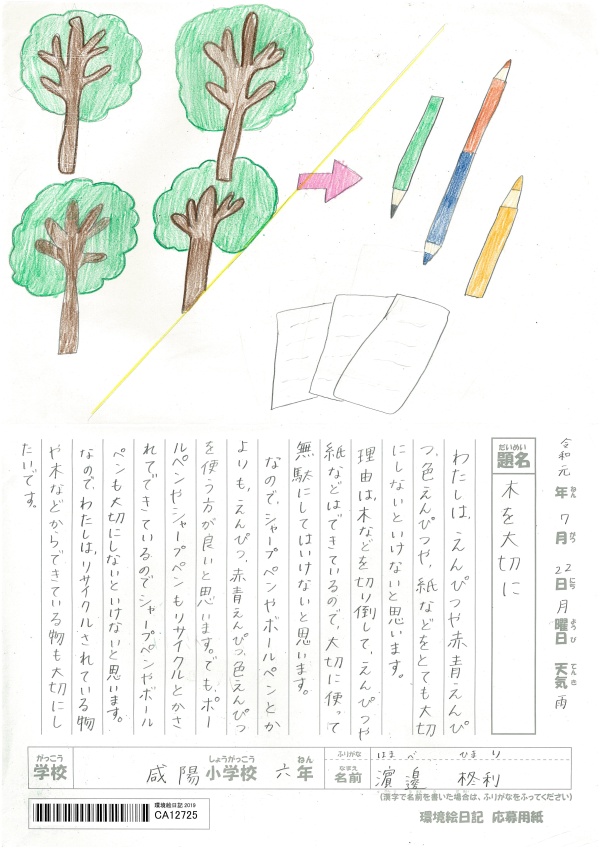 令和元年ねん 7月がつ 22日にち 月曜日ようび 天気てんき 雨
題名だいめい 木を大切に
わたしは、えんぴつや赤青えんぴ
つ、色えんぴつや、紙などをとても大切
にしないといけないと思います。
理由は、木などを切り倒して、えんぴつや
紙などはできているので、大切に使って
無駄にしてはいけないと思います。
なので、シャープペンやボールペンとか
よりも、えんぴつ、赤青えんぴつ、色えんぴつ
を使う方が良いと思います。でも、ボー
ルペンやシャープペンもリサイクルとかさ
れてできているのでシャープペンやボール
ペンも大切にしないといけないと思います。
なので、わたしは、リサイクルされている物
や木などからできている物も大切にし
たいです。
がっこう 学校 咸陽 しょうがっこう 小学校 六 ねん 年
ふりがな はまべ ひまり
なまえ 名前 濵邊 柊利
(漢字で名前を書いた場合は、ふりがなをふってください)
環境絵日記 2019
CA12725
環境絵日記 応募用紙